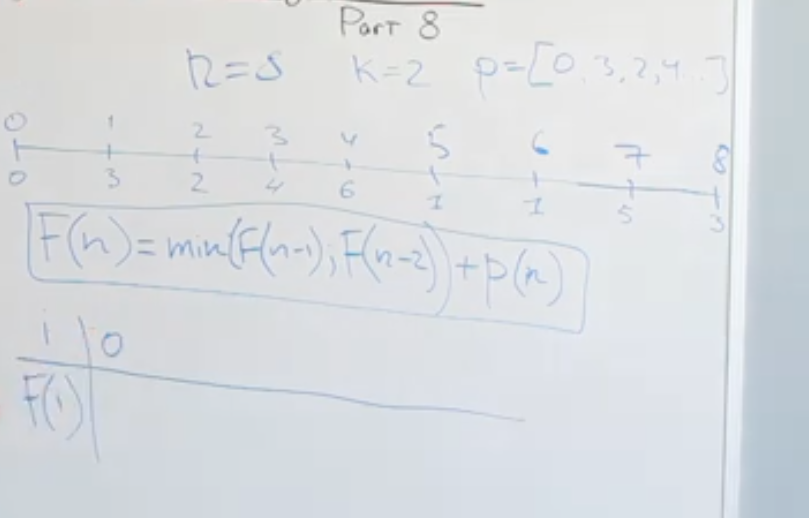 Part 8
n=8 k=2 p=[0,3,2,4...]
0 1 2 3 4 5 6 7 8
0 3 2 4 6 1 1 5 3
F(n)=min(F(n-1);F(n-2))+p(n)
i 0
F(i)